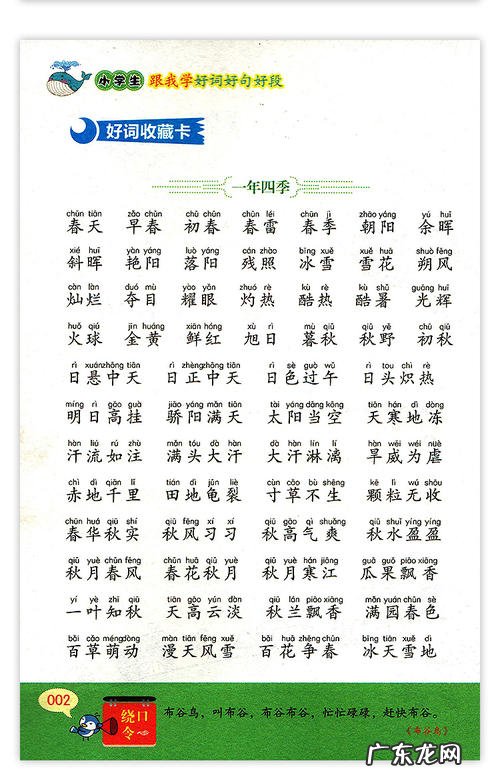 小学生 跟我学好词好句好段
好词收藏卡
一年四季
chūn tiān zǎo chūn chū chūn chūn léi chūn jì zhāo yáng yú huī
春天 早春 初春 春雷 春季 朝阳 余晖
xié huī yàn yáng luò yáng cán zhào bīng xuě xuě huā shuò fēng
斜晖 艳阳 落阳 残照 冰雪 雪花 朔风
càn làn duó mù yào yǎn zhuó rè kù rè kù shǔ guāng huī
灿烂 夺目 耀眼 灼热 酷热 酷暑 光辉
huǒ qiú jīn huáng xiān hóng xù rì mù qiū qiū yě chū qiū
火球 金黄 鲜红 旭日 暮秋 秋野 初秋
rì xuánzhōng tiān rì zhèngzhōng tiān rì sè guò wǔ rì tou chì rè
日悬中天 日正中天 日色过午 日头炽热
míng rì gāo guà jiāo yáng mǎn tiān tài yáng dāng kōng tiān hán dì dòng
明日高挂 骄阳满天 太阳当空 天寒地冻
hàn liú rú zhù mǎn tóu dà hàn dà hàn lín lí hàn wēi wéi nüè
汗流如注 满头大汗 大汗淋漓 旱威为虐
chì dì qiān lǐ tián dì jūn liè cùn cǎo bù shēng kē lì wú shōu
赤地千里 田地龟裂 寸草不生 颗粒无收
chūn huá qiū shí qiū fēng xí xí qiū gāo qì shuǎng qiū shuǐ yíng yíng
春华秋实 秋风习习 秋高气爽 秋水盈盈
qiū yuè chūn fēng chūn huā qiū yuè qiū yuè hán jiāng guā guǒ piāo xiāng
秋月春风 春花秋月 秋月寒江 瓜果飘香
yí yè zhī qiū tiān gāo yún dàn qiū lán piāo xiāng mǎn yuán chūn sè
一叶知秋 天高云淡 秋兰飘香 满园春色
bǎi cǎo méng dòng màn tiān fēng xuě bǎi huā zhēng chūn bīng tiān xuě dì
百草萌动 漫天风雪 百花争春 冰天雪地
002
绕口令
布谷鸟，叫布谷，布谷布谷，忙忙碌碌，赶快布谷。
《布谷鸟》
广东龙网